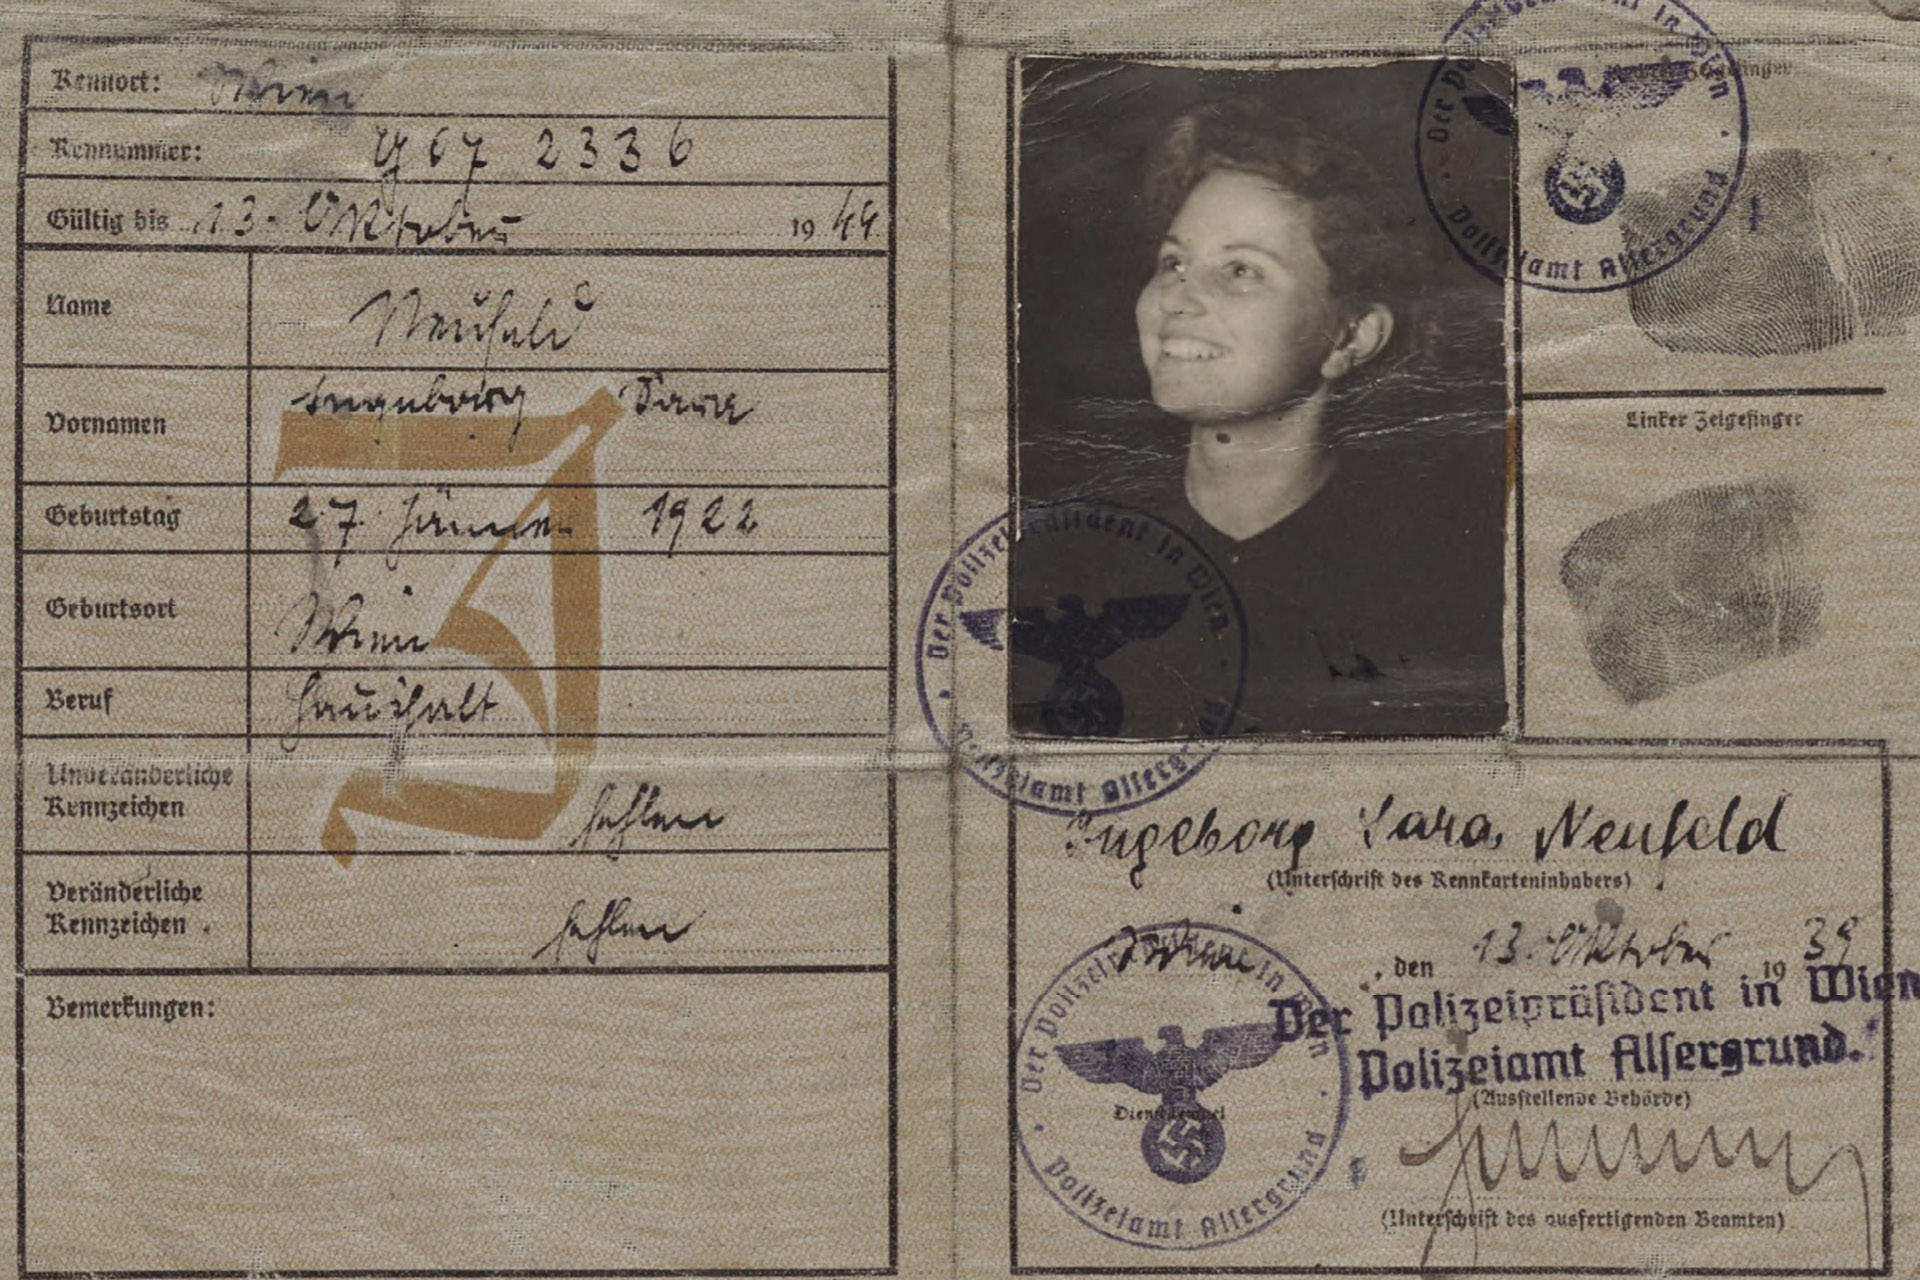 Kennort: Wien
Kennummer: G 67 2336
Gültig bis 13. Oktober 1944
Name Neufeld
Vornamen Ingeborg Sara
Geburtstag 27. Jänner 1922
Geburtsort Wien
Beruf Haushalt
Unveränderliche
Kennzeichen fehlen
Veränderliche
Kennzeichen fehlen
Bemerkungen:
Der Polizeipräsident in Wien
Polizeiamt Alsergrund
Zeigefinger
Linker Zeigefinger
Der Polizeipräsident in Wien
Polizeiamt Alsergrund
Ingeborg Sara Neufeld
(Unterschrift des Kennkarteninhabers)
Wien, den 13. Oktober 1939
Der Polizeipräsident in Wien
Polizeiamt Alsergrund.
(Ausstellende Behörde)
Der Polizeipräsident in Wien
Dienststempel
Polizeiamt Alsergrund
(Unterschrift des ausfertigenden Beamten)